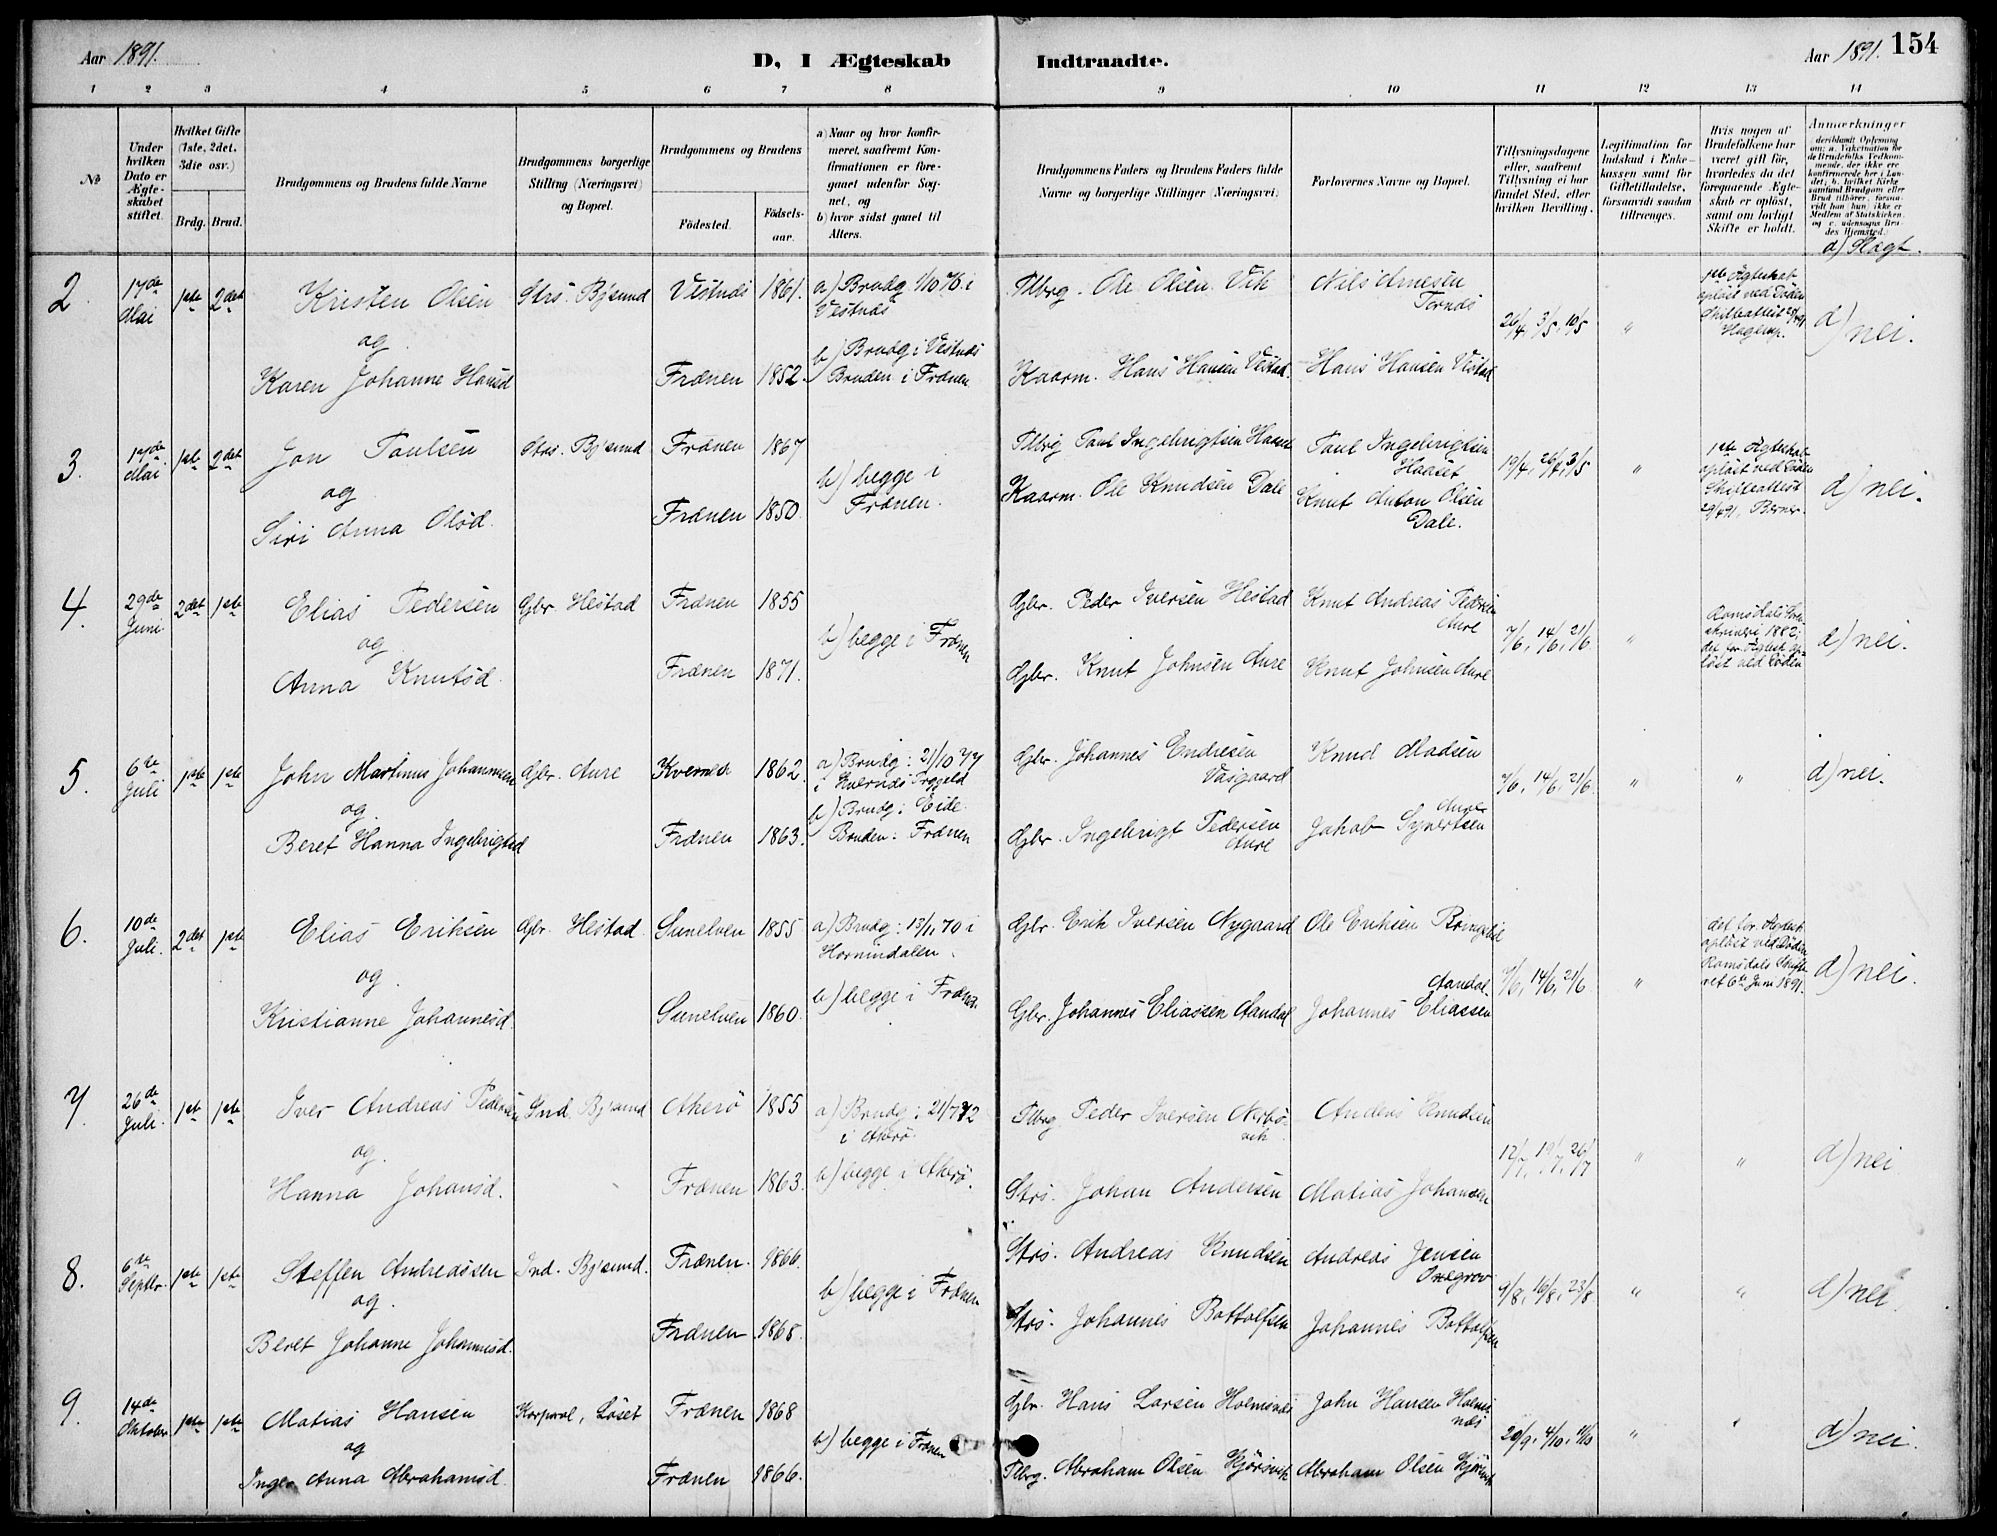 Aar 1891.
D, I Ægteskab
Indtraadte.
Aar 1891.
154
1 2 3 4 5 6 7 8 9 10 11 12 13 14
№
Under hvilken Dato er Ægte-skabet stiftet.
Hvilket Gifte (1ste, 2det, 3die osv.)
Brdg. Brud.
Brudgommens og Brudens fulde Navne
Brudgommens borgerlige Stilling (Næringsvei) og Bopæl.
Brudgommens og Brudens
Fødested.
Fødsels-aar.
a) Naar og hvor konfir-
meret, saafremt Kon-
firmationen er fore-
gaaet udenfor Sog-
net, og
b) hvor sidst gaaet til
Alters.
Brudgommens Faders og Brudens Faders fulde
Navne og borgerlige Stillinger (Næringsvei).
Forlovernes Navne og Bopæl.
Tillysningsdagene
eller, saafremt
Tillysning ei har
fundet Sted, efter
hvilken Bevilling.
Legitimation for
Indskud i Enke-
kassen samt for
Giftetilladelse,
forsaavidt saadan
tiltrænges.
Hvis nogen af
Brudefolkene har
været gift før,
hvorledes da det
foregaaende Ægte-
skab er opløst,
samt om lovligt
Skifte er holdt.
Anmærkninger
deriblandt Oplysning
om: a. Vakcination for
de Brudefolks Vedkom-
mende, der ikke ere
konfirmerede her i Lan-
det; b. hvilket Kirke-
samfund Brudgom eller
Brud tilhører, forsaa-
vidt han, hun, ikke er
Medlem af Statskirken,
og c. udensogns Bru-
des Hjemsted.
d) Slægt.
2
17de Mai
1ste 2det
Kristen Olsen
og
Karen Johanne Hansd
Strs. Bysund
Vestnes 1861.
Frænen 1852.
a) Brudg 1/10 76 i
Vestnes
b) Brudg i Vestnes
Bruden i Frænen
Flbrg. Ole Olsen Vik
Kaarm. Hans Hansen Vestad
Nils Arnesen
Tornes
Hans Hansen Vestad
26/4, 3/5, 10/5
"
1ste Ægteskab
opløst ved Døden
Skifteattest 25/4 91
Hagerup.
d) nei.
3.
17de Mai
1ste 2det
Jon Paulsen
og
Siri Anna Olsd.
Strs. Bysund
Frænen 1867
Frænen 1850.
b) begge i
Frænen.
Flbrg Paul Ingebrigtsen Haaset
Kaarm. Ole Knudsen Dale
Paul Ingebrigtsen
Haaset
Knut Anton Olsen
Dale.
19/4, 26/4, 3/5
"
1ste Ægteskab
opløst ved Døden
Skifteattest
29/4 91, Berner.
d) nei.
4.
29de Juni
2det 1ste
Elias Pedersen
og
Anna Knutsd.
Gbr. Hestad
Frænen 1855
Frænen 1871.
b) begge i Frænen
Gbr. Peder Iversen Hestad
Gbr. Knut Johnsen Aure
Knut Andreas Pedersen
Aure
Knut Johnsen Aure
7/6, 14/6, 21/6.
"
d) nei.
5.
6te Juli
1ste 1ste
John Martinus Johannesen
og
Beret Hanna Ingebrigtsd
Gbr. Aure
Kvernes 1862.
Frænen 1863.
a) Brudg: 21/10 77
i Kvernes Præsteg.
b) Brudg: Eide
Bruden: Frænen
Gbr. Johannes Endresen
Vasgaard
Gbr. Ingebrigt Pedersen
Aure
Knud Madsen
Aure
Jakob Syvertsen
7/6, 14/6, 21/6.
"
"
d) nei.
6.
10de Juli.
2det 1ste
Elias Eriksen
og
Kristianne Johannesd.
Gbr. Hestad
Sunelven 1855
Sunelven 1860.
a) Brudg: 13/11 70 i
Hornindalen.
b) begge i Frænen
Gbr. Erik Iversen Nygaard
Gbr. Johannes Eliassen Aandal
Ole Eriksen
Aandal.
Johannes Eliassen
7/6, 14/6, 21/6
"
det for. Ægtesk.
opløst ved Døden
Romsdals Skifte-
ret 6te Juni 1891.
d) nei.
7.
26de Juli.
1ste 1ste
Iver Andreas Pedersen
og.
Hanna Johansd.
Ind. Bysund
Akerø 1855
Frænen 1863.
a) Brudg: 21/7 72
i Akerø.
b) begge i Akerø.
Flbrg Peder Iversen Nerbø-
vik
Strs. Johan Andersen
Anders Knudsen
Matias Johansen
12/7, 19/7, 26/7
"
"
d) nei
8.
6te Septbr.
1ste 1ste
Steffen Andreassen
og.
Beret Johanne Johannesd.
Ind. Bysund.
Frænen. 1866.
Frænen 1868.
b) begge i Frænen
Strs. Andreas Knudsen
Strs. Johannes Bottolfsen
Andreas Jensen
Johannes Bottolfsen
9/8, 16/8, 23/8
"
"
d) nei.
9.
14de Oktober
1ste 1ste
Matias Hansen
og
Inger Anna Abrahamsd.
Korporal, Løset
Frænen 1868
Frænen 1866.
b) begge i Frænen
Gbr. Hans Larsen Holmsnes
Flbrg. Abraham Olsen Hjørsvik
John Hansen Holms-
næs
Abraham Olsen Hjørsvik
20/9, 4/10, 11/10
"
"
d) nei.